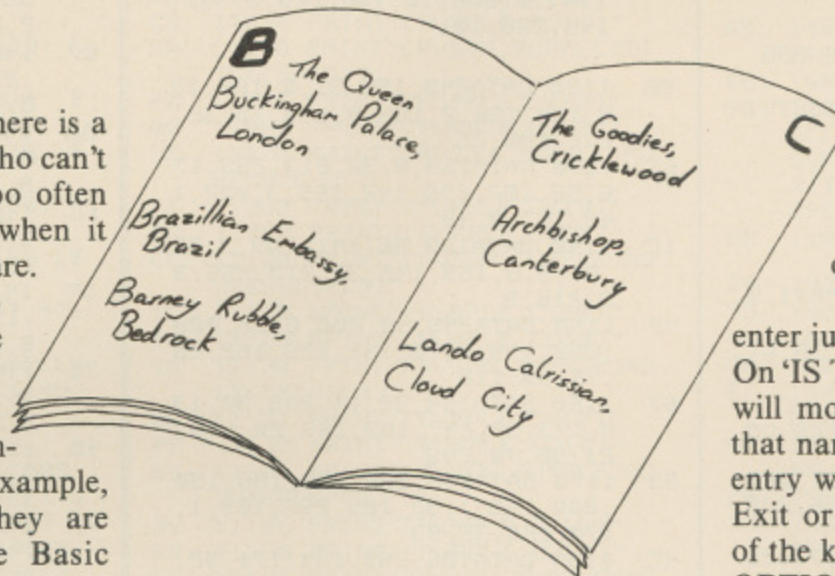 here is a
ho can't
oo often
when it
are.
xample,
hey are
e Basic
B
The Queen
Buckingham Palace,
London
Brazillian Embassy,
Brazil
Barney Rubble,
Bedrock
C
The Goodies,
Cricklewood
Archbishop,
Canterbury
Lando Calrissian,
Cloud City
enter ju
On 'IS
will mo
that nar
entry w
Exit or
of the k